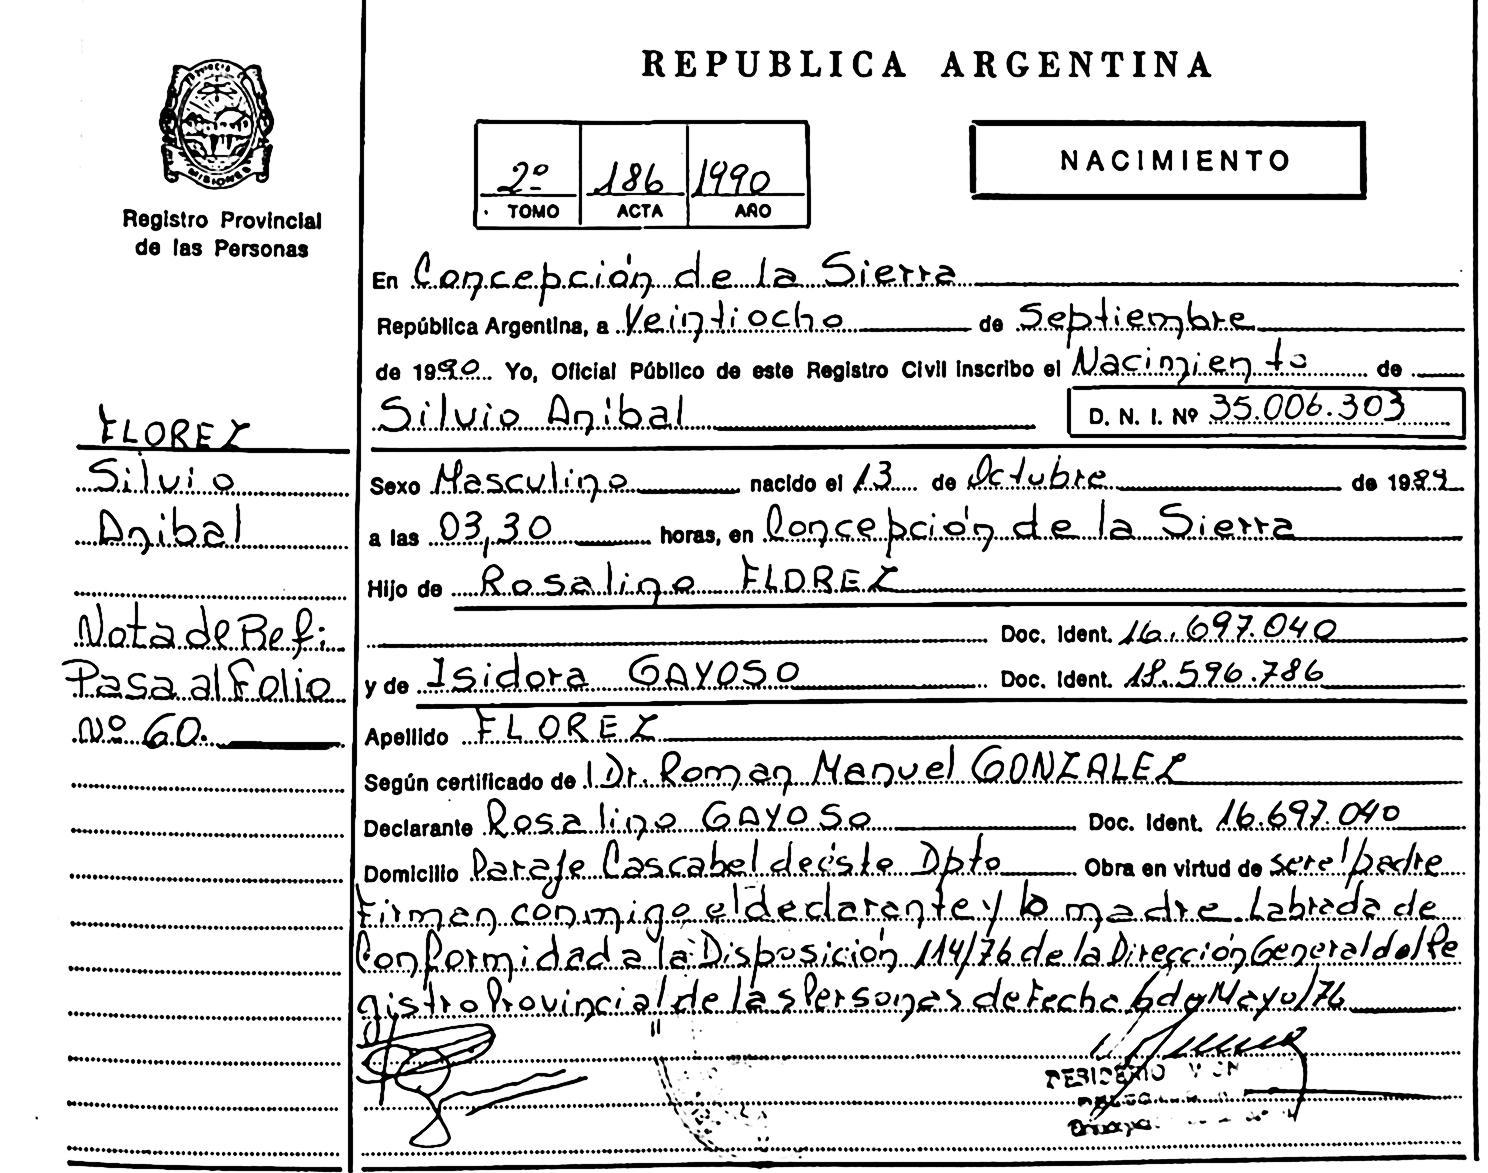 REPUBLICA ARGENTINA
PROVINCIA DE
MISIONES
Registro Provincial
de las Personas
2º 186 1990
TOMO ACTA AÑO
NACIMIENTO
En Concepción de la Sierra
República Argentina, a Veintiocho de Septiembre
de 1990 Yo, Oficial Público de este Registro Civil inscribo el Nacimiento de
Silvio Anibal D. N. I. Nº 35.006.303
FLOREZ
Silvio
Anibal
Nota de Ref:
Pasa al Folio
Nº 60.
Sexo Masculino nacido el 13 de Octubre de 1989
a las 03,30 horas, en Concepción de la Sierra
Hijo de Rosalino FLOREZ
Doc. Ident. 16.697.040
y de Isidora GAYOSO Doc. Ident. 18.596.786
Apellido FLOREZ
Según certificado de l Dr. Roman Manuel GONZALEZ
Declarante Rosalino GAYOSO Doc. Ident. 16.697.040
Domicilio Paraje Cascabel de éste Dpto Obra en virtud de ser el padre
Firman conmigo el declarante y la madre. Labrada de
Conformidad a la Disposición 114/76 de la Dirección General del Re
gistro Provincial de las Personas de fecha 6 de Mayo/76
DESIDERIO